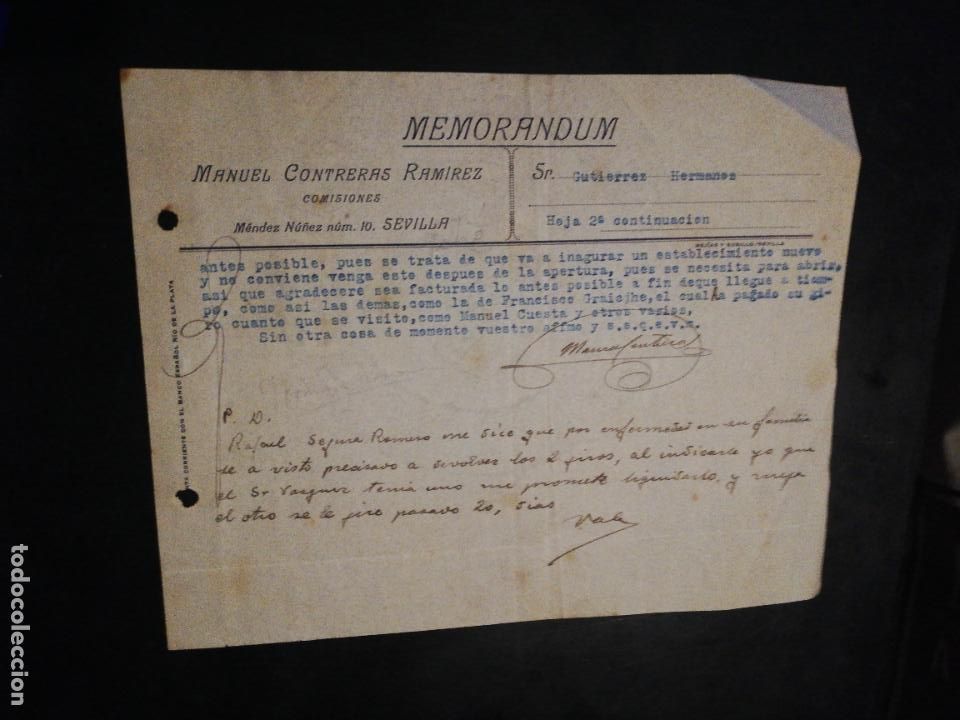 MEMORANDUM
MANUEL CONTRERAS RAMÍREZ
COMISIONES
Méndez Núñez núm. 10. SEVILLA
Sr. Gutierrez Hermanos
Hoja 2ª continuacion
antes posible, pues se trata de que va a inagurar un establecimiento nuevo
y no conviene venga esto despues de la apertura, pues se necesita para abrir,
asi que agradecere sea facturada lo antes posible a fin deque llegue a tiem-
po, como asi las demas, como la de Francisco, el cual a pagado su gi-
ro cuanto que se visito, como Manuel Cuesta y otros varios,
Sin otra cosa de momento vuestro afimo y s.s.q.e.v.m.
P. D.
Rafael Segura Romero me dice que por enfermedad en su familia
se a visto precisado a devolver los 2 giros, al indicarle yo que
el Sr Vazquez tenia uno me promete liquidarlo, y ruega
el otro se le gire pasado 20, dias
Vale
CORRIENTE CON EL BANCO ESPAÑOL RÍO DE LA PLATA
todocoleccion